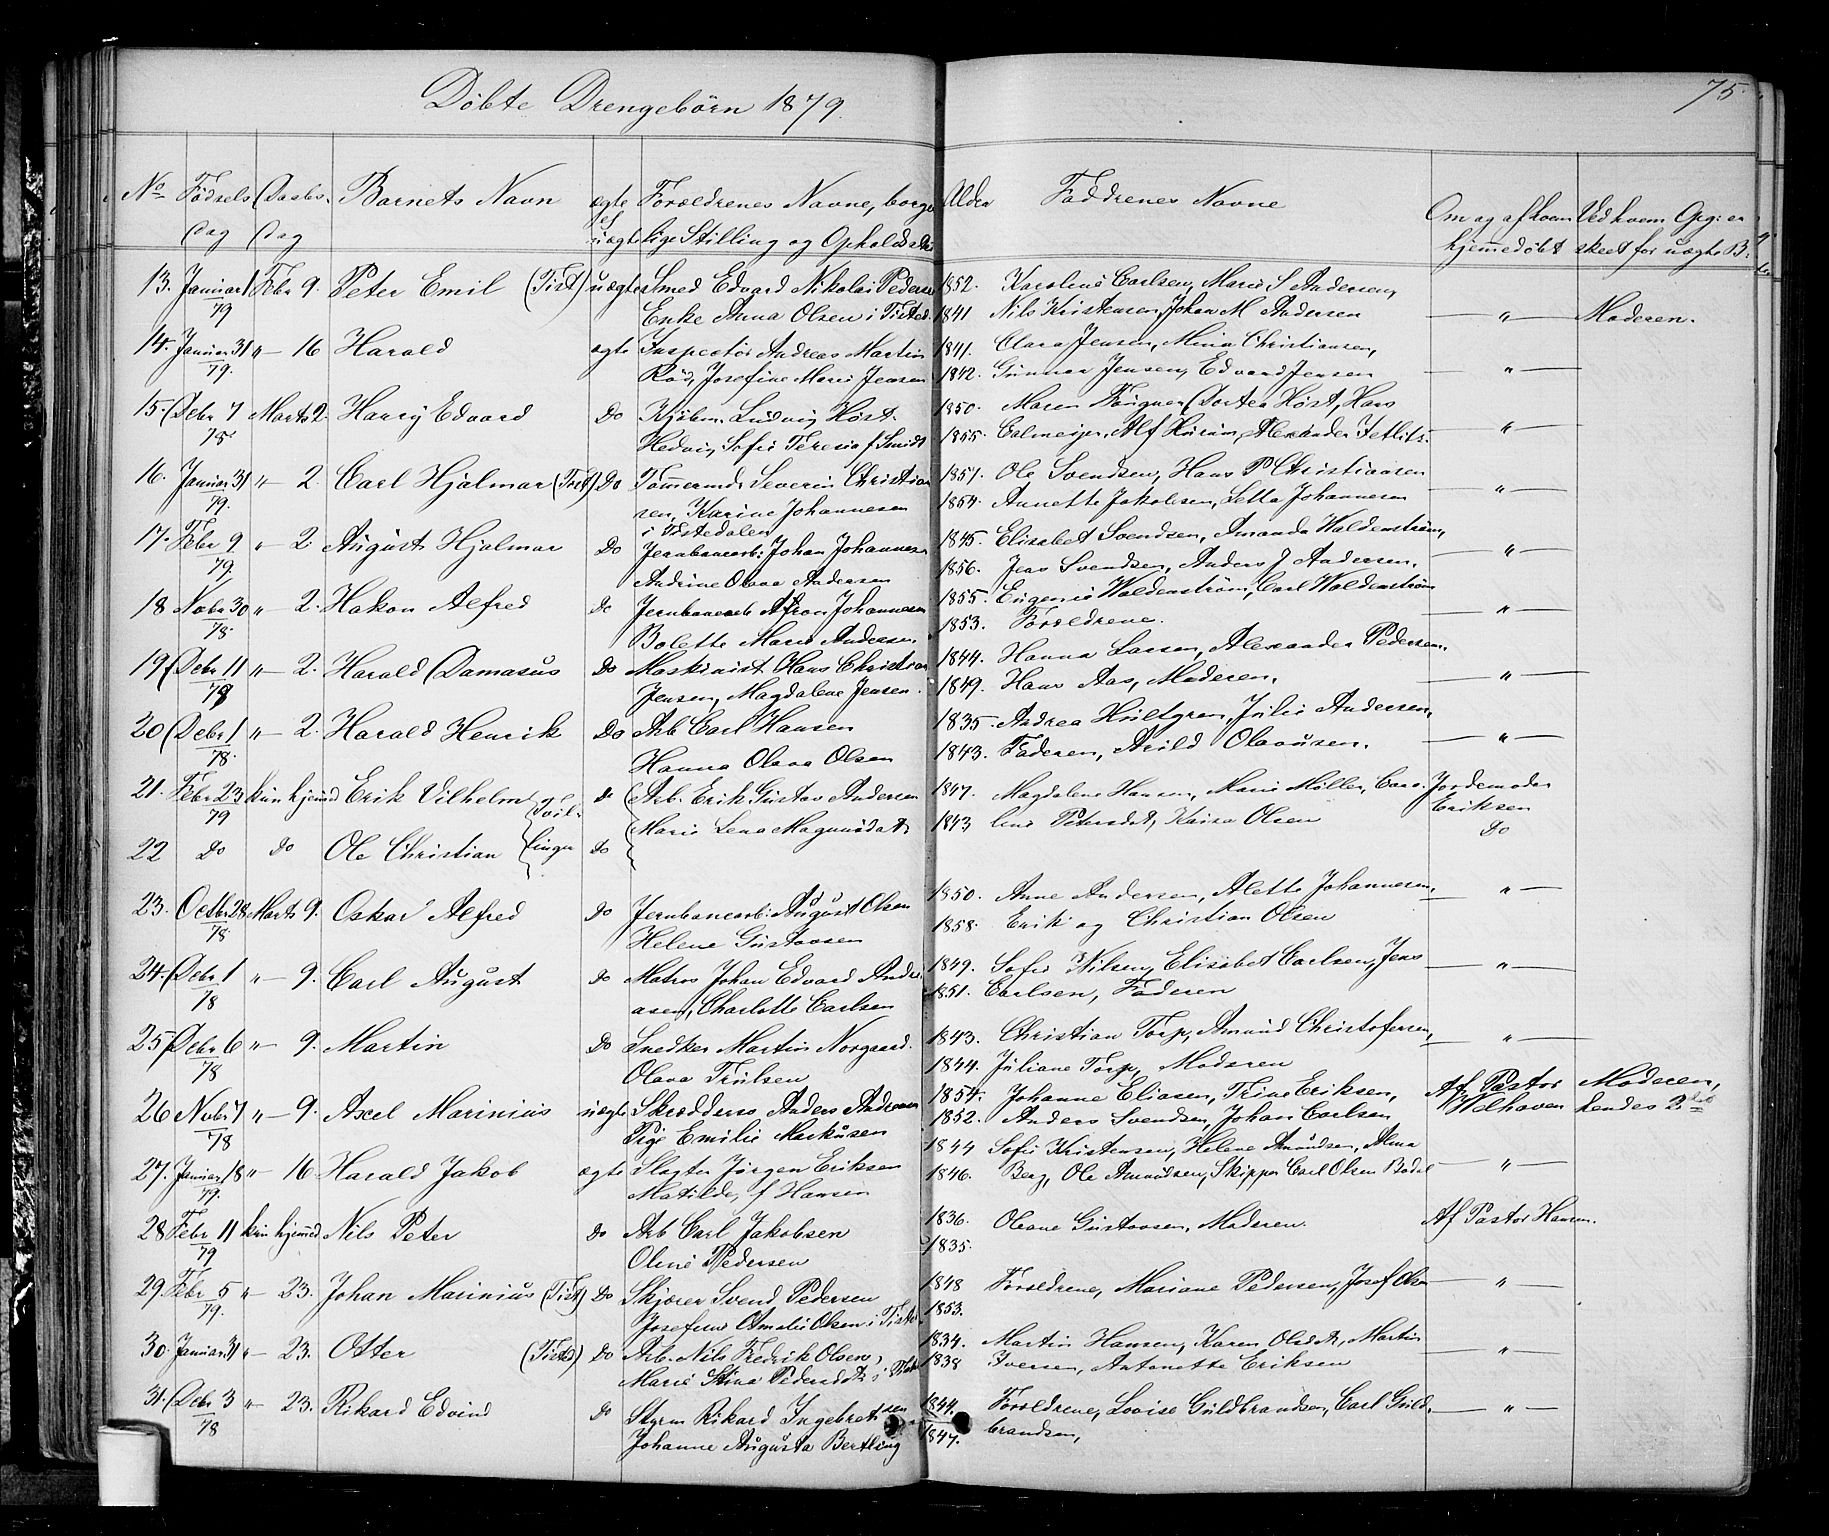 Døbte Drengebørn 1879.
75.
No Fødsels Daabs Barnets Navn ægte Forældrenes Navne, borger Alder Faddrenes Navne Om og af hvem Ved hvem Opg: er
dag dag el uægte lige Stilling og Opholds hjemmedøbt skeet for uægte B.
13. Januar 1 Febr 9. Peter Emil (Tist) uægte Smed Edvard Nikolai Peders 1852. Karoline Carlsen, Marie S Andersen,
79 Enke Anna Olsen i Tisted. 1841 Nils Kristensen, Johan M Andersen — " — Moderen.
14. Januar 31 " — 16 Harald ægte Inspectør Andreas Martin 1841. Clara Jensen, Mina Christiansen,
79. Rød, Josefine Marie Jensen 1842. Gunnar Jensen, Edvard Jensen — " —
15. Debr 7 Marts 2. Harry Edvard Do Kjøbm. Ludvig Høst. 1850. Maren Dortea Høst, Hans
78 Hedvig Sofie Teresia f Smidt 1855. Calmeijer, Alf Hurum, Alexander — " —
16. Januar 31 " — 2. Carl Hjalmar (Tist) Do Tømmermd. Severin Christian 1857. Ole Svendsen, Hans P Christiansen
79. sen, Karine Johannesen 1854. Annette Jakobsen, Johannesen — " —
i Tistedalen
17. Febr 9 " — 2. August Hjalmar Do Jernbanearb: Johan Johannes 1845. Elisabet Svendsen, Amanda Waldenstrøm,
79. Andrine Olava Andersen 1856. Jens Svendsen, Anders J Andersen. — " —
18 Novbr 30 " — 2. Hakon Alfred Do Jernbanearb Johannesen 1855. Eugenie Waldenstrøm, Carl Waldenstrøm
78. Bolette Marie Andersen. 1853. Forældrene. — " —
19 Debr 11 " — 2. Harald Damasus Do Maskinist Hans Christian 1844. Hanna Larsen, Alexander Pedersen.
78 Jensen, Magdalene Jensen. 1849. Hans Aas, Moderen. — " —
20 Debr 1 " — 2. Harald Henrik Do Arb Carl Hansen 1835. Andrea Hultgren, Julie Andersen,
78. Hanna Olava Olsen 1843. Faderen, Arild Olavusen. — " —
21. Febr 23 kun hjemmd Erik Vilhelm { Tvil- do { Arb. Erik Gustav Andersen 1847. Magdalene Hansen, Marie Møller, Caro- Jordemoder
79 Marie Lena Magnusdat 1843 line Petersdat, Kaisa Olsen Eriksen
22 Do Do Ole Christian { linger do Do
23. Octbr 28 Marts 9. Oskar Alfred Do Jernbanearb: August Olsen 1850. Anne Andersen, Alette Johannesen, — " —
78 Helene Gustavsen 1858. Erik og Christian Olsen
24. Debr 1 " — 9. Carl August Do Matros Johan Edvard Andre 1849. Sofie Nilsen, Elisabet Carlsen, Jens — " —
78 asen, Charlotte Carlsen 1851. Carlsen, Faderen
25 Debr 6 " — 9. Martin Do Snedker Martin Norgaard. 1843. Christian Torp, Amund Christofersen, — " —
78 Olava Trulsen 1844. Juliane Torp, Moderen
26 Novbr 7 " — 9. Axel Marinius uægte Skræddersv Anders Andreasen 1854. Johanne Eliasen, Trine Eriksen, Af Pastor Moderen,
78 Pige Emilie Markusen 1852. Anders Svendsen, Johan Carlsen Welhaven hendes 2det
27. Januar 18 " — 16. Harald Jakob ægte Slagter Jørgen Eriksen 1844 Sofie Kristensen, Helene Amundsen, Alma
79. Matilde, f Hansen 1846. Berg, Ole Amundsen, Skipper Carl Olsen Bødel — " —
28 Febr 11 kun hjemmed Nils Peter Do Arb Carl Jakobsen 1836. Oleane Gustavsen, Moderen. Af Pastor Hansen.
79 Oline Pedersen 1835.
29. Febr 5 " — 23. Johan Marinius (Tist) Do Skjærer Svend Pedersen 1848 Forældrene, Mariane Pedersen, Josef Olsen — " —
79. Josefine Amalie Olsen i Tisted. 1853.
30. Januar 31 " — 23. Otter (Tisted) Do Arb. Nils Fredrik Olsen, 1834. Martin Hansen, Karen Olsdt, Martin — " —
Marie Stine Pedersdat i Tisted 1838 Iversen, Antonette Eriksen
31. Debr 3 " — 23. Rikard Edvind Do Styrm Rikard Ingebretsen 1844. Forældrene, Lovise Guldbrandsen, Carl Guld- — " —
78 Johanne Augusta Bertling 1847. brandsen,